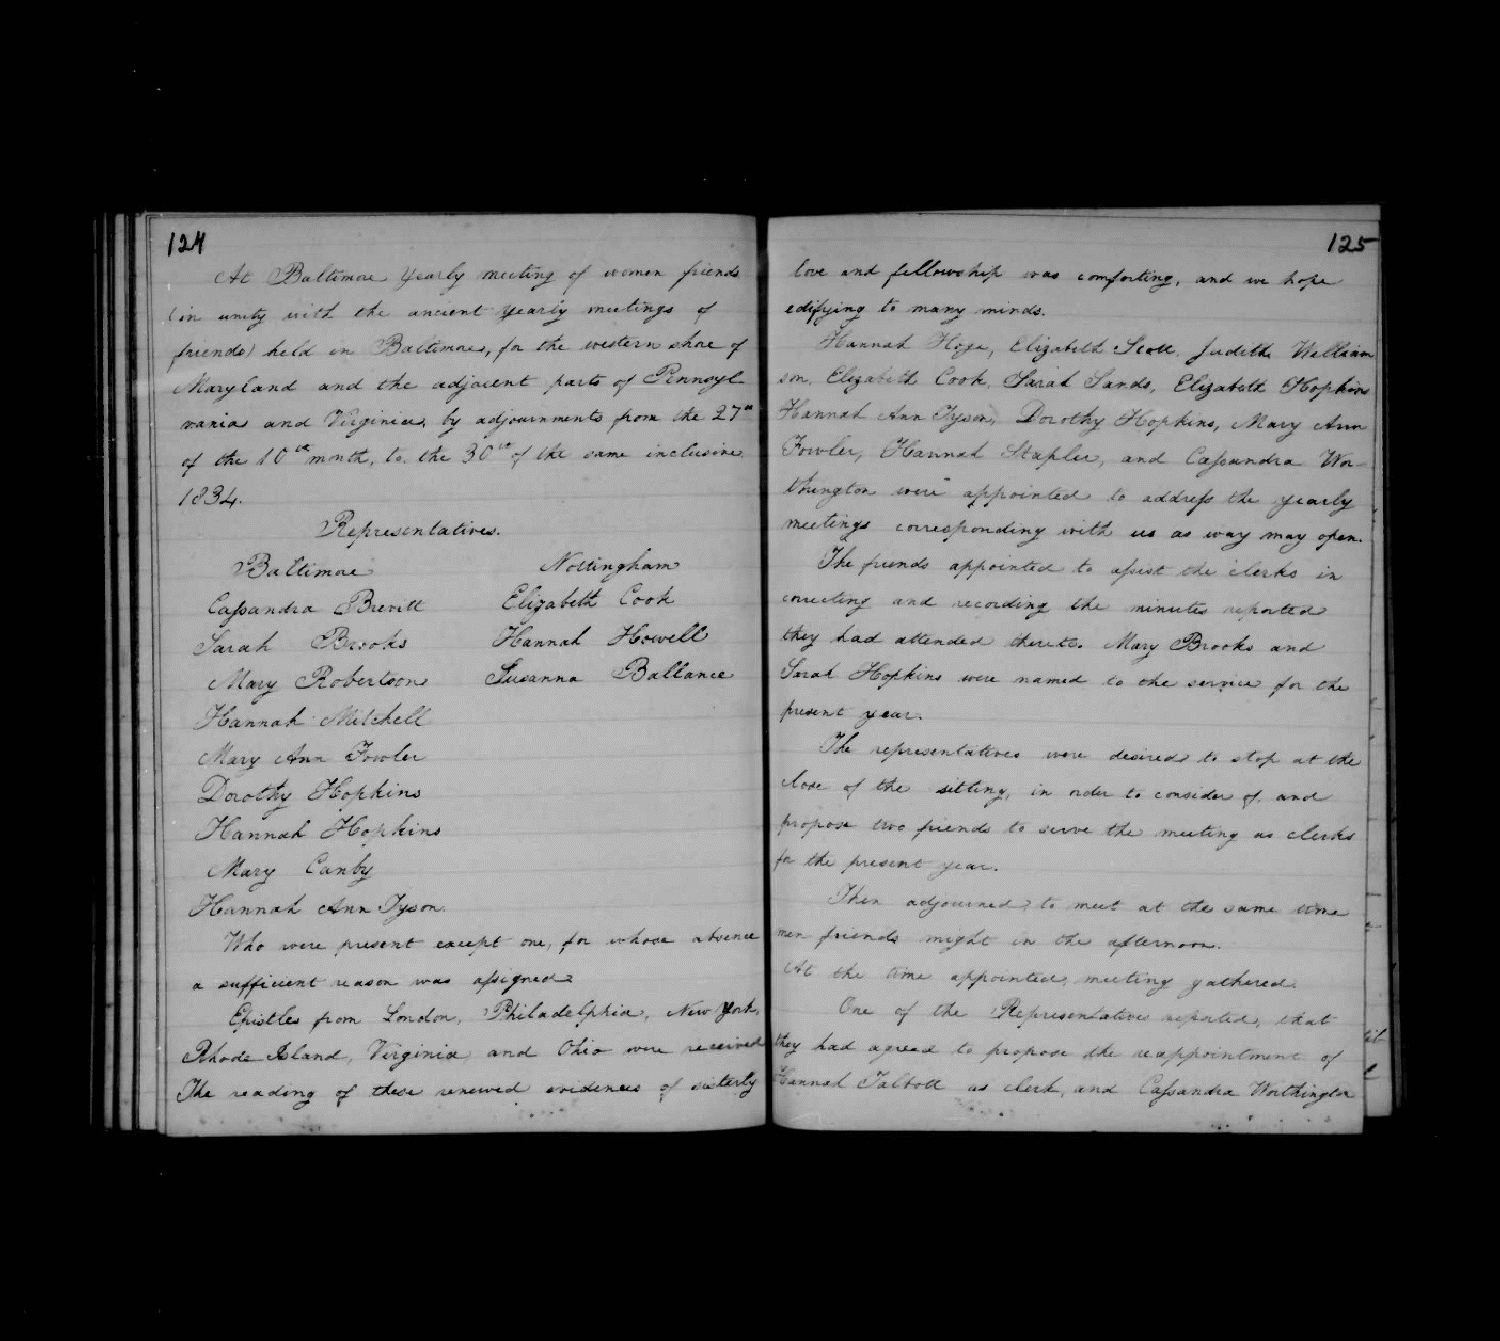 124
At Baltimore yearly meeting of women friends
(in unity with the ancient yearly meetings of
friends) held in Baltimore, for the western shore of
Maryland and the adjacent parts of Pennsyl
vania and Virginia, by adjournments from the 27th
of the 10th month, to the 30th of the same inclusive
1834.
Representatives.
Baltimore Nottingham
Cassandra Brevitt Elizabeth Cook
Sarah Brooks Hannah Howell
Mary Robertson Susanna Ballance
Hannah Mitchell
Mary Ann Fowler
Dorothy Hopkins
Hannah Hopkins
Mary Canby
Hannah Ann Tyson.
Who were present except one, for whose absence
a sufficient reason was assigned
Epistles from London, Philadelphia, New York,
Rhode Island, Virginia and Ohio were received
The reading of these renewed evidences of sisterly
125
love and fellowship was comforting, and we hope
edifying to many minds.
Hannah Hoge, Elizabeth Scott, Judith William
son, Elizabeth Cook, Sarah Sands, Elizabeth Hopkins
Hannah Ann Tyson, Dorothy Hopkins, Mary Ann
Fowler, Hannah Stapler, and Cassandra Wor-
thington were appointed to address the yearly
meetings corresponding with us as way may open.
The friends appointed to assist the clerks in
correcting and recording the minutes reported
they had attended thereto. Mary Brooks and
Sarah Hopkins were named to the service for the
present year.
The representatives were desired to stop at the
close of the sitting, in order to consider of, and
propose two friends to serve the meeting as clerks
for the present year.
Then adjourned to meet at the same time
men friends might in the afternoon.
At the time appointed, meeting gathered.
One of the Representatives reported, that
they had agreed to propose the reappointment of
Hannah Talbott as clerk, and Cassandra Worthington